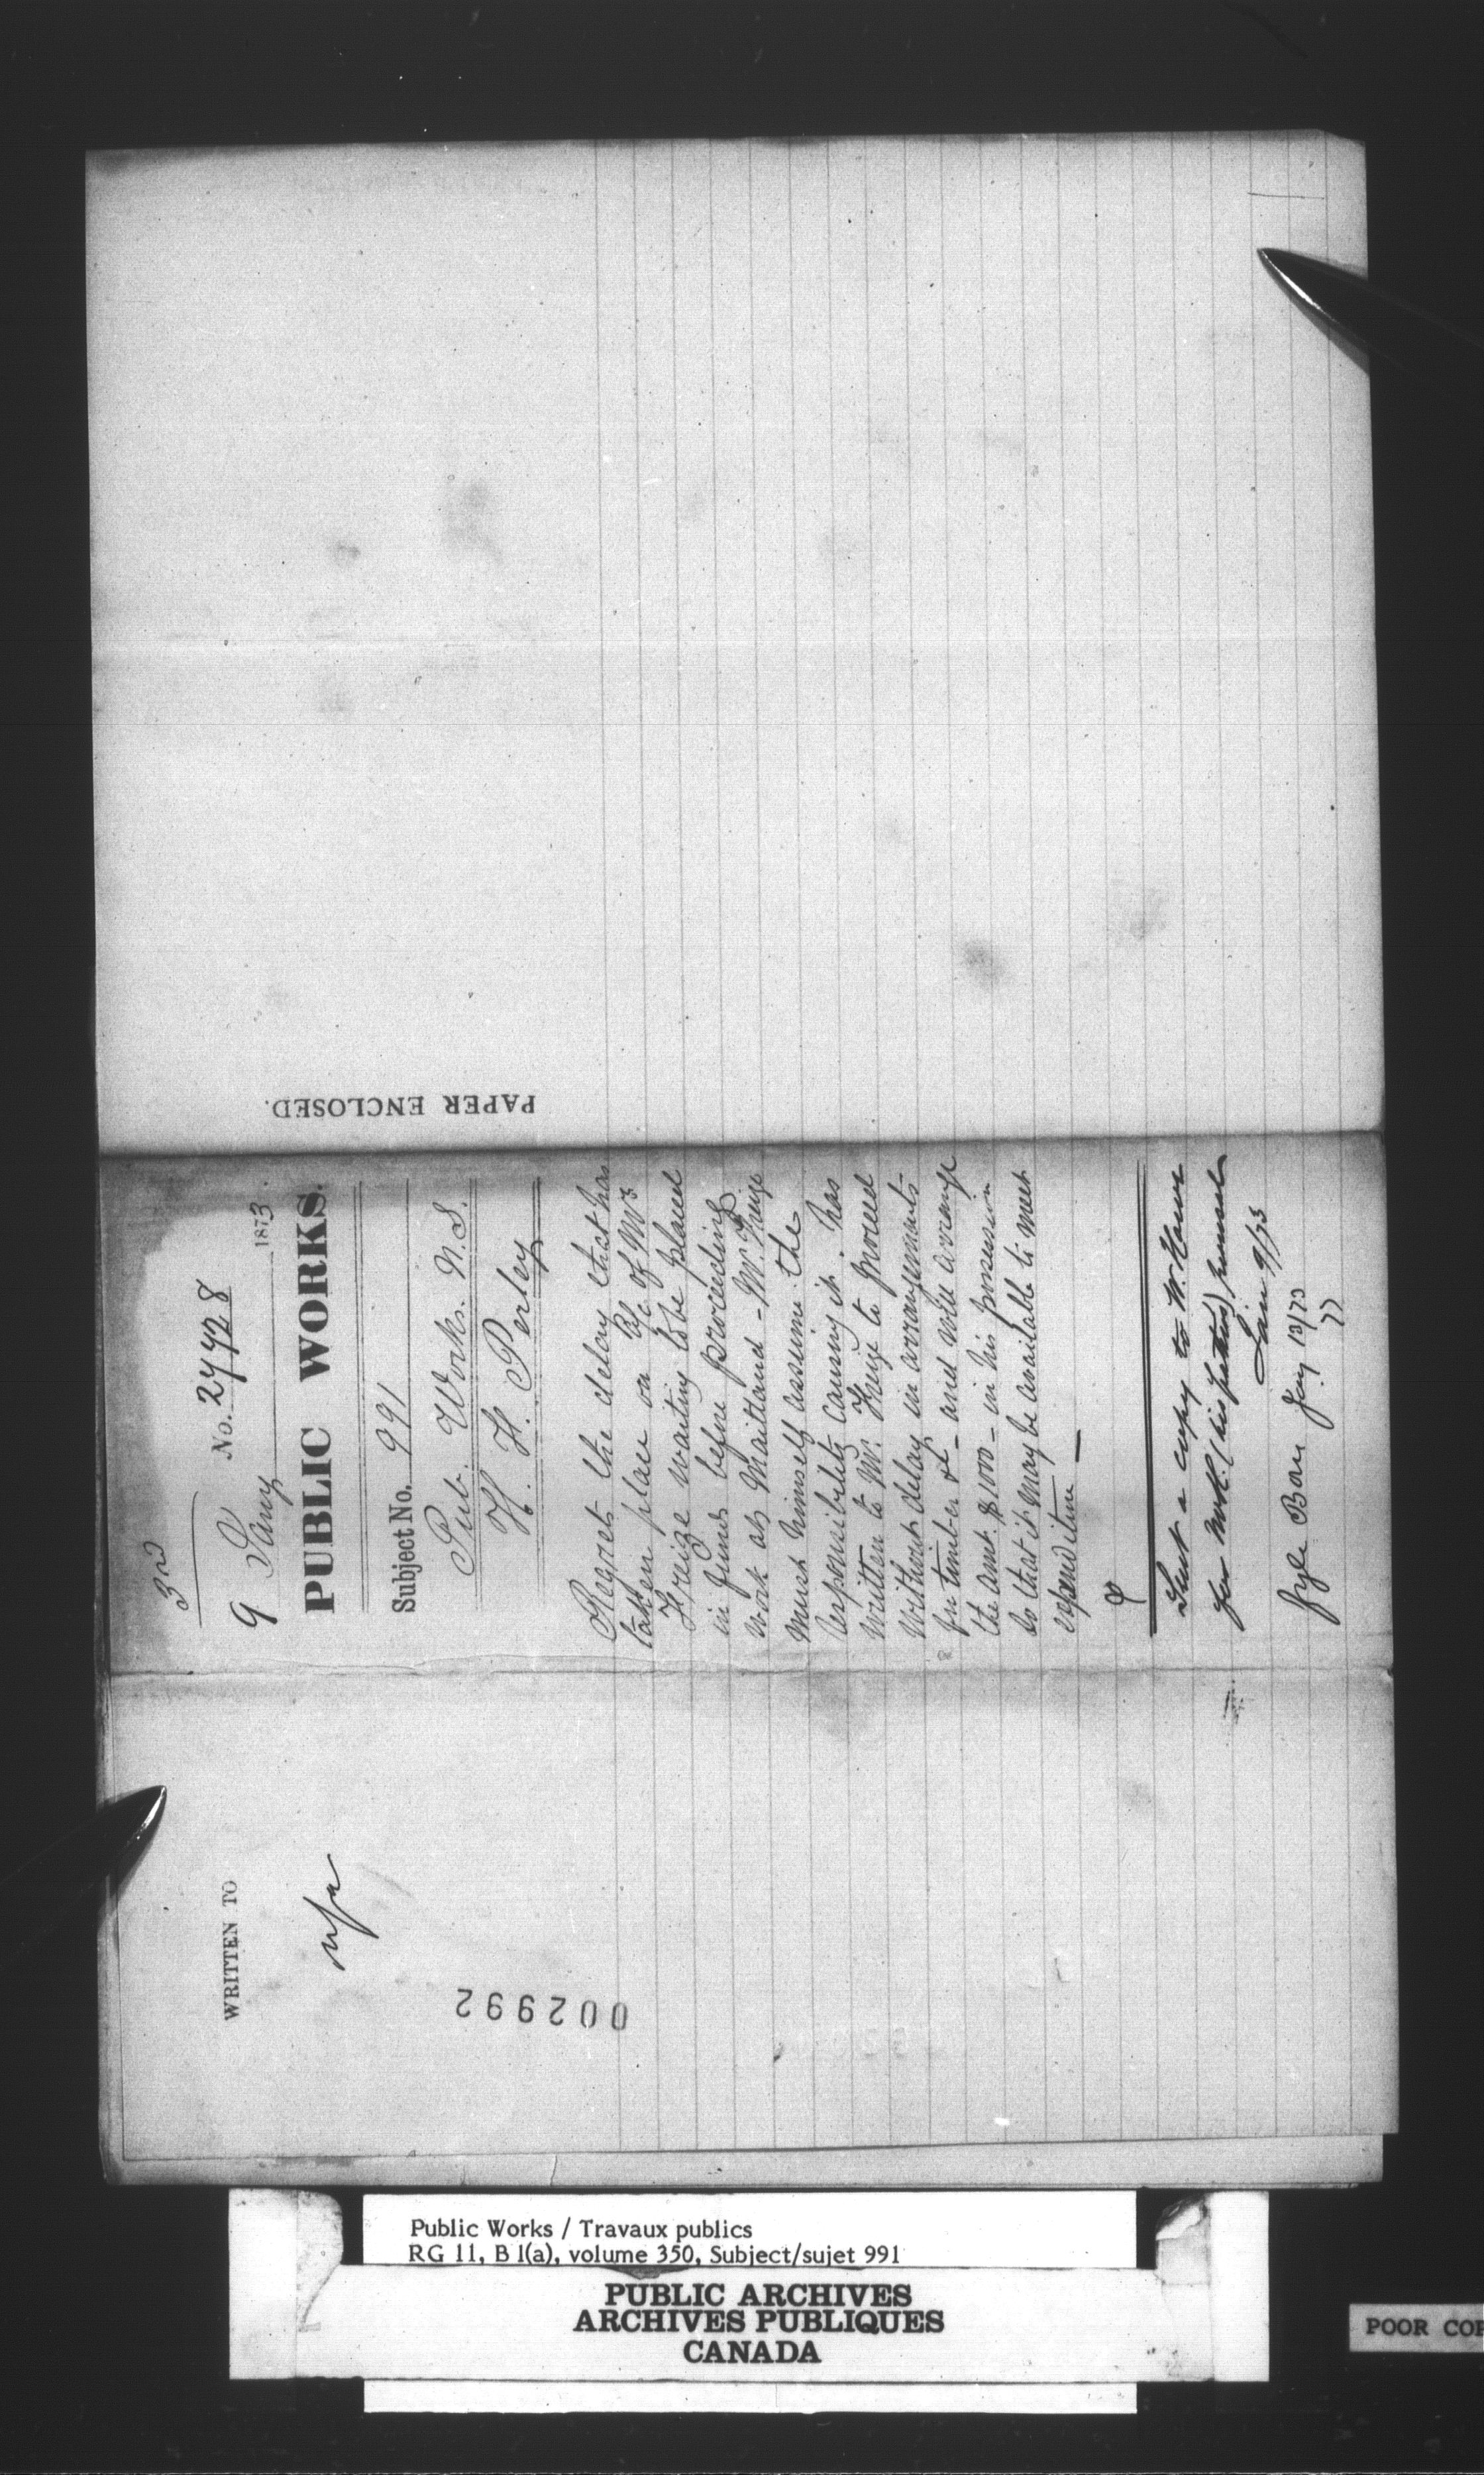 3rd
No. 27428
9 Jany 1873.
PUBLIC WORKS.
Subject No. 991
Pub. Works. N.S.
H. H. Perley
Regret the delay that has
taken place on a/c of Mr
Freize waiting to be placed
in funds before proceeding
work at Maitland - Mr. Freize
must himself assume the
responsibility causing it. has
written to Mr. Freize to proceed
without delay in arrangements
for timber &c - and will arrange
the amt. $1000 - in his possession
so that it may be available to meet
expenditure -
Sent a copy to Mr. Howe
for
9/73
Jany 10/73
77
PAPER ENCLOSED.
WRITTEN TO
002992
Public Works / Travaux publics
RG 11, B 1(a), volume 350, Subject/sujet 991
PUBLIC ARCHIVES
ARCHIVES PUBLIQUES
CANADA
POOR COP